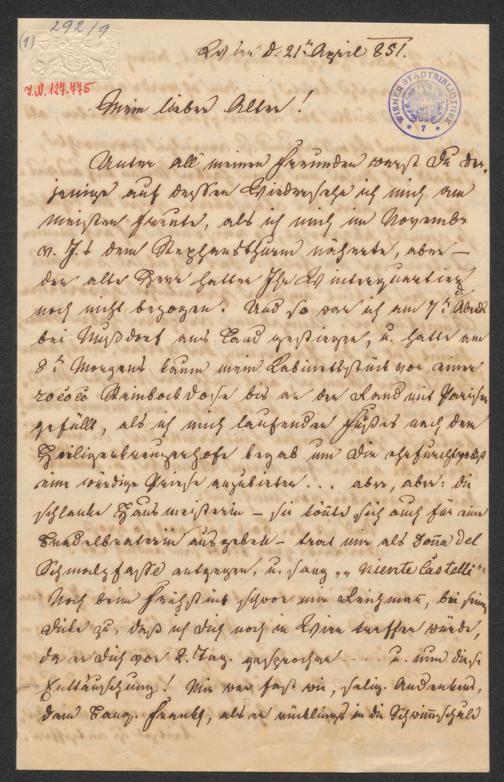 292/9
(1)
Wien d. 21t April 851.
J.N. 127.475
WIENER STADTBIBLIOTHEK
* 7 *
Mein lieber Alter!
Unter all' meinen Freunden warst Du der-
jenige auf dessen Wiedersehn ich mich am
meisten freute, als ich mich im November
v. J.s dem Stephansthurm näherte, aber –
der alte Herr hatten Ihr Winterquartier
noch nicht bezogen. Und so war ich am 7t Abends
bei Nußdorf ans Land gestiegen, u. hatte am
8t Morgens kaum mein Cabinetsstück von einer
rococo Steinbockdose bis an den Rand mit Pariser
gefüllt, als ich mich laufenden Fußes nach dem
Heiligenkreuzerhofe begab um Dir ehrfurchtsvollst
eine würdige Priese anzubieten ... aber, aber: die
schlanke Hausmeisterin – sie könnte sich auch für eine
ausgeben – trat mir als Doña del
Schmalzfasse entgegen, u. sang „niente Castelli"
Noch beim Frühstück schwor mir, bei seiner
zu, daß ich Dich noch in Wien treffen würde,
da er Dich vor 2. Tag. gesprochen .... u. nun diese
Enttäuschung! Mir war fast wie, selig. Andenkens,
dem Sang. Franke, als er rücklings in die Schwimmschule